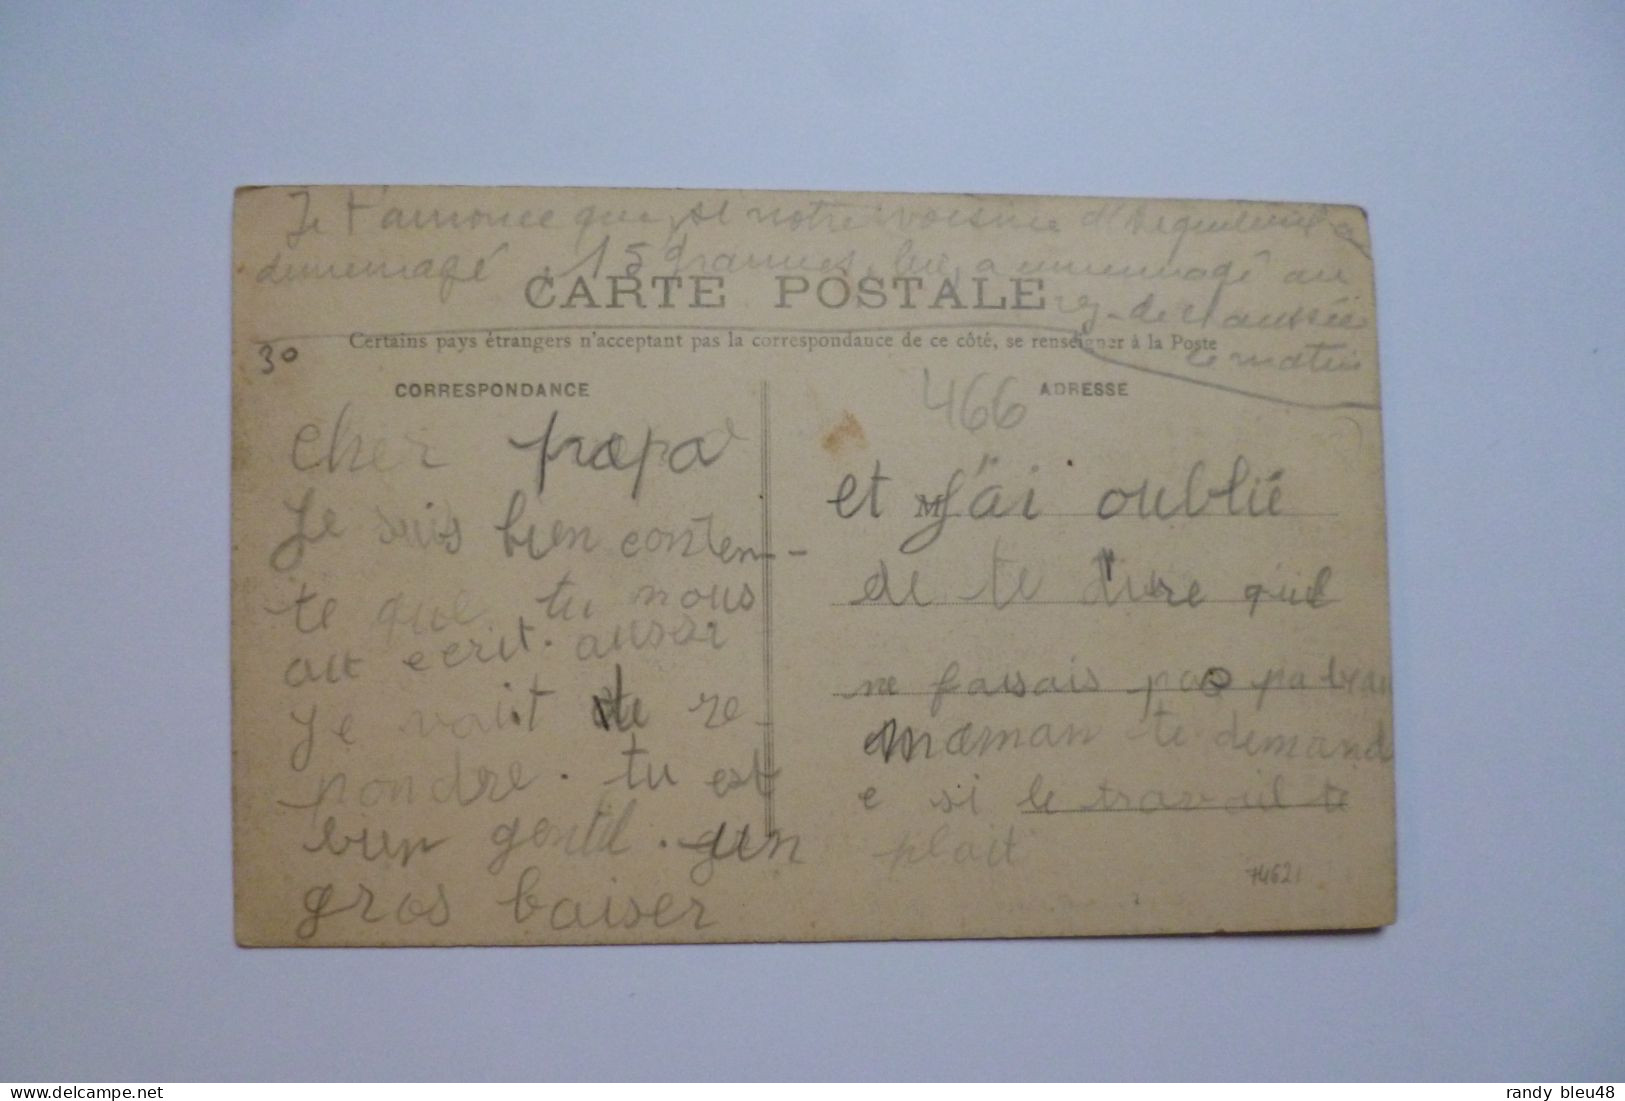 Je t'annonce que si notre voisine d'
demenagé 15 a emmenagé au
rez-de chaussée
ce matin
CARTE POSTALE
Certains pays étrangers n'acceptant pas la correspondance de ce côté, se renseigner à la Poste
30
CORRESPONDANCE
cher papa
Je suis bien conten-
te que tu nous
au ecrit. aussi
je vait te re-
pondre. tu est
bien gentil.
gros baiser
466
ADRESSE
et j'ai oublié
M
de te dire qu'il
ne faisais pas
maman te demand
e si le travail te
plait
74621
randy bleu48